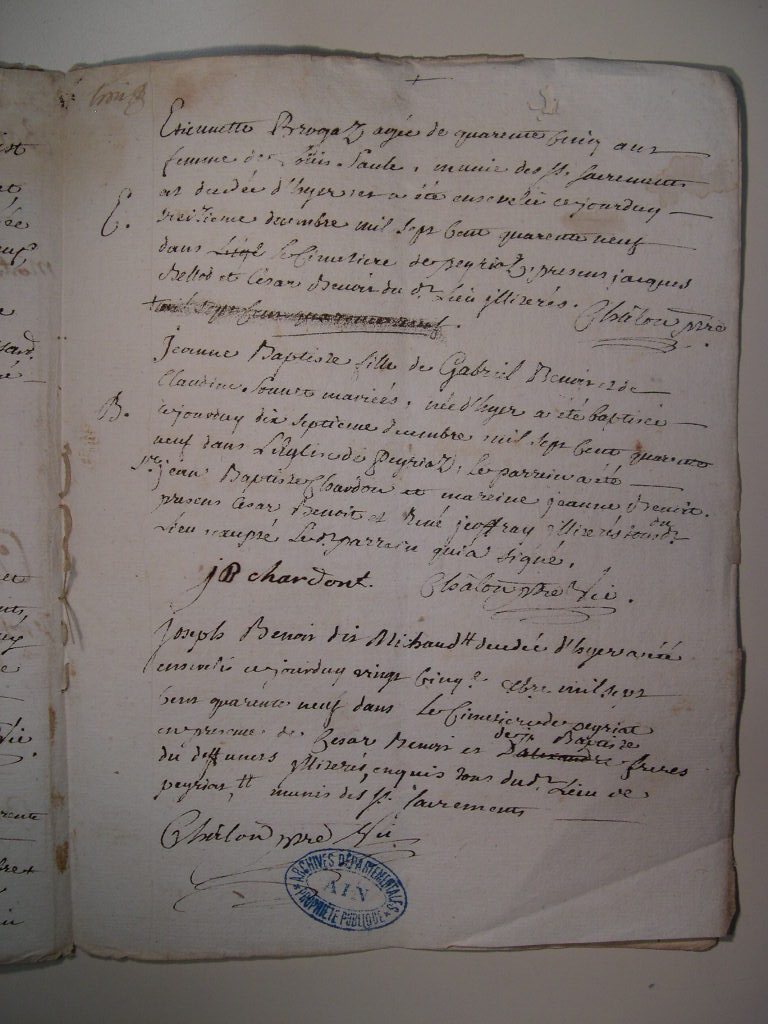 Etiennette Brogaz agée de quarente cinq ans
femme de Loüis Paule, munie des st. sacrements
et decedée d'hyer et a été ensevelie cejourduy
E.
dixseptieme decembre mil sept cent quarente neuf
dans le cimetiere de peyriaz, presens jacques
Bellod et César Benoit du dt. Lieu illiterés. Châlon ptre
mil sept cent quarente neuf.
Jeanne Baptiste fille de Gabriel Benoit et de
Claudine mariées, née d'hyer a été baptisée
B.
cejourduy dix septieme decembre mil sept cent quarente
neuf dans L'église de Peyriaz, le parrein a été
sr. jean Baptiste Chardon et mareine jeanne Benoit.
presens César Benoit et René jeoffray illiterés tous du dt.
Lieu excepté le dt. parrein qui a signé.
JB chardont. Châlon ptre Vic.
Joseph Benoit dit Michaud tt decedé d'hyer a été
enseveli cejourduy vingt cinq e. xbre mil sept
cent quarente neuf dans Le Cimetiere de peyriat
en presence de Cesar Benoit et de Jn Baptiste freres
du deffunct illiterés, enquis tous du dt. Lieu de
peyriat, tt munis des st. sacrements
Châlon ptre Vic.
ARCHIVES DÉPARTEMENTALES
AIN
PROPRIÉTÉ PUBLIQUE